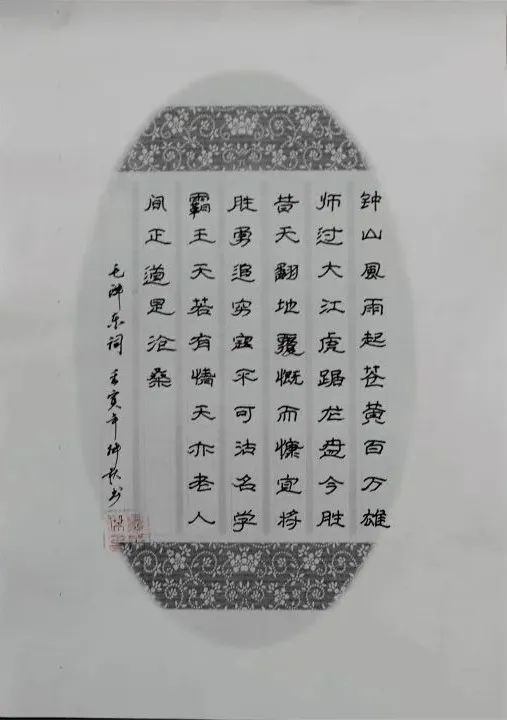 钟山風雨起苍黄百万雄
师过大江虎踞龙盘今胜
昔天翻地覆慨而慷宜将
胜勇追穷寇不可沽名学
霸王天若有情天亦老人
间正道是沧桑
毛泽东词 壬寅年仲秋书